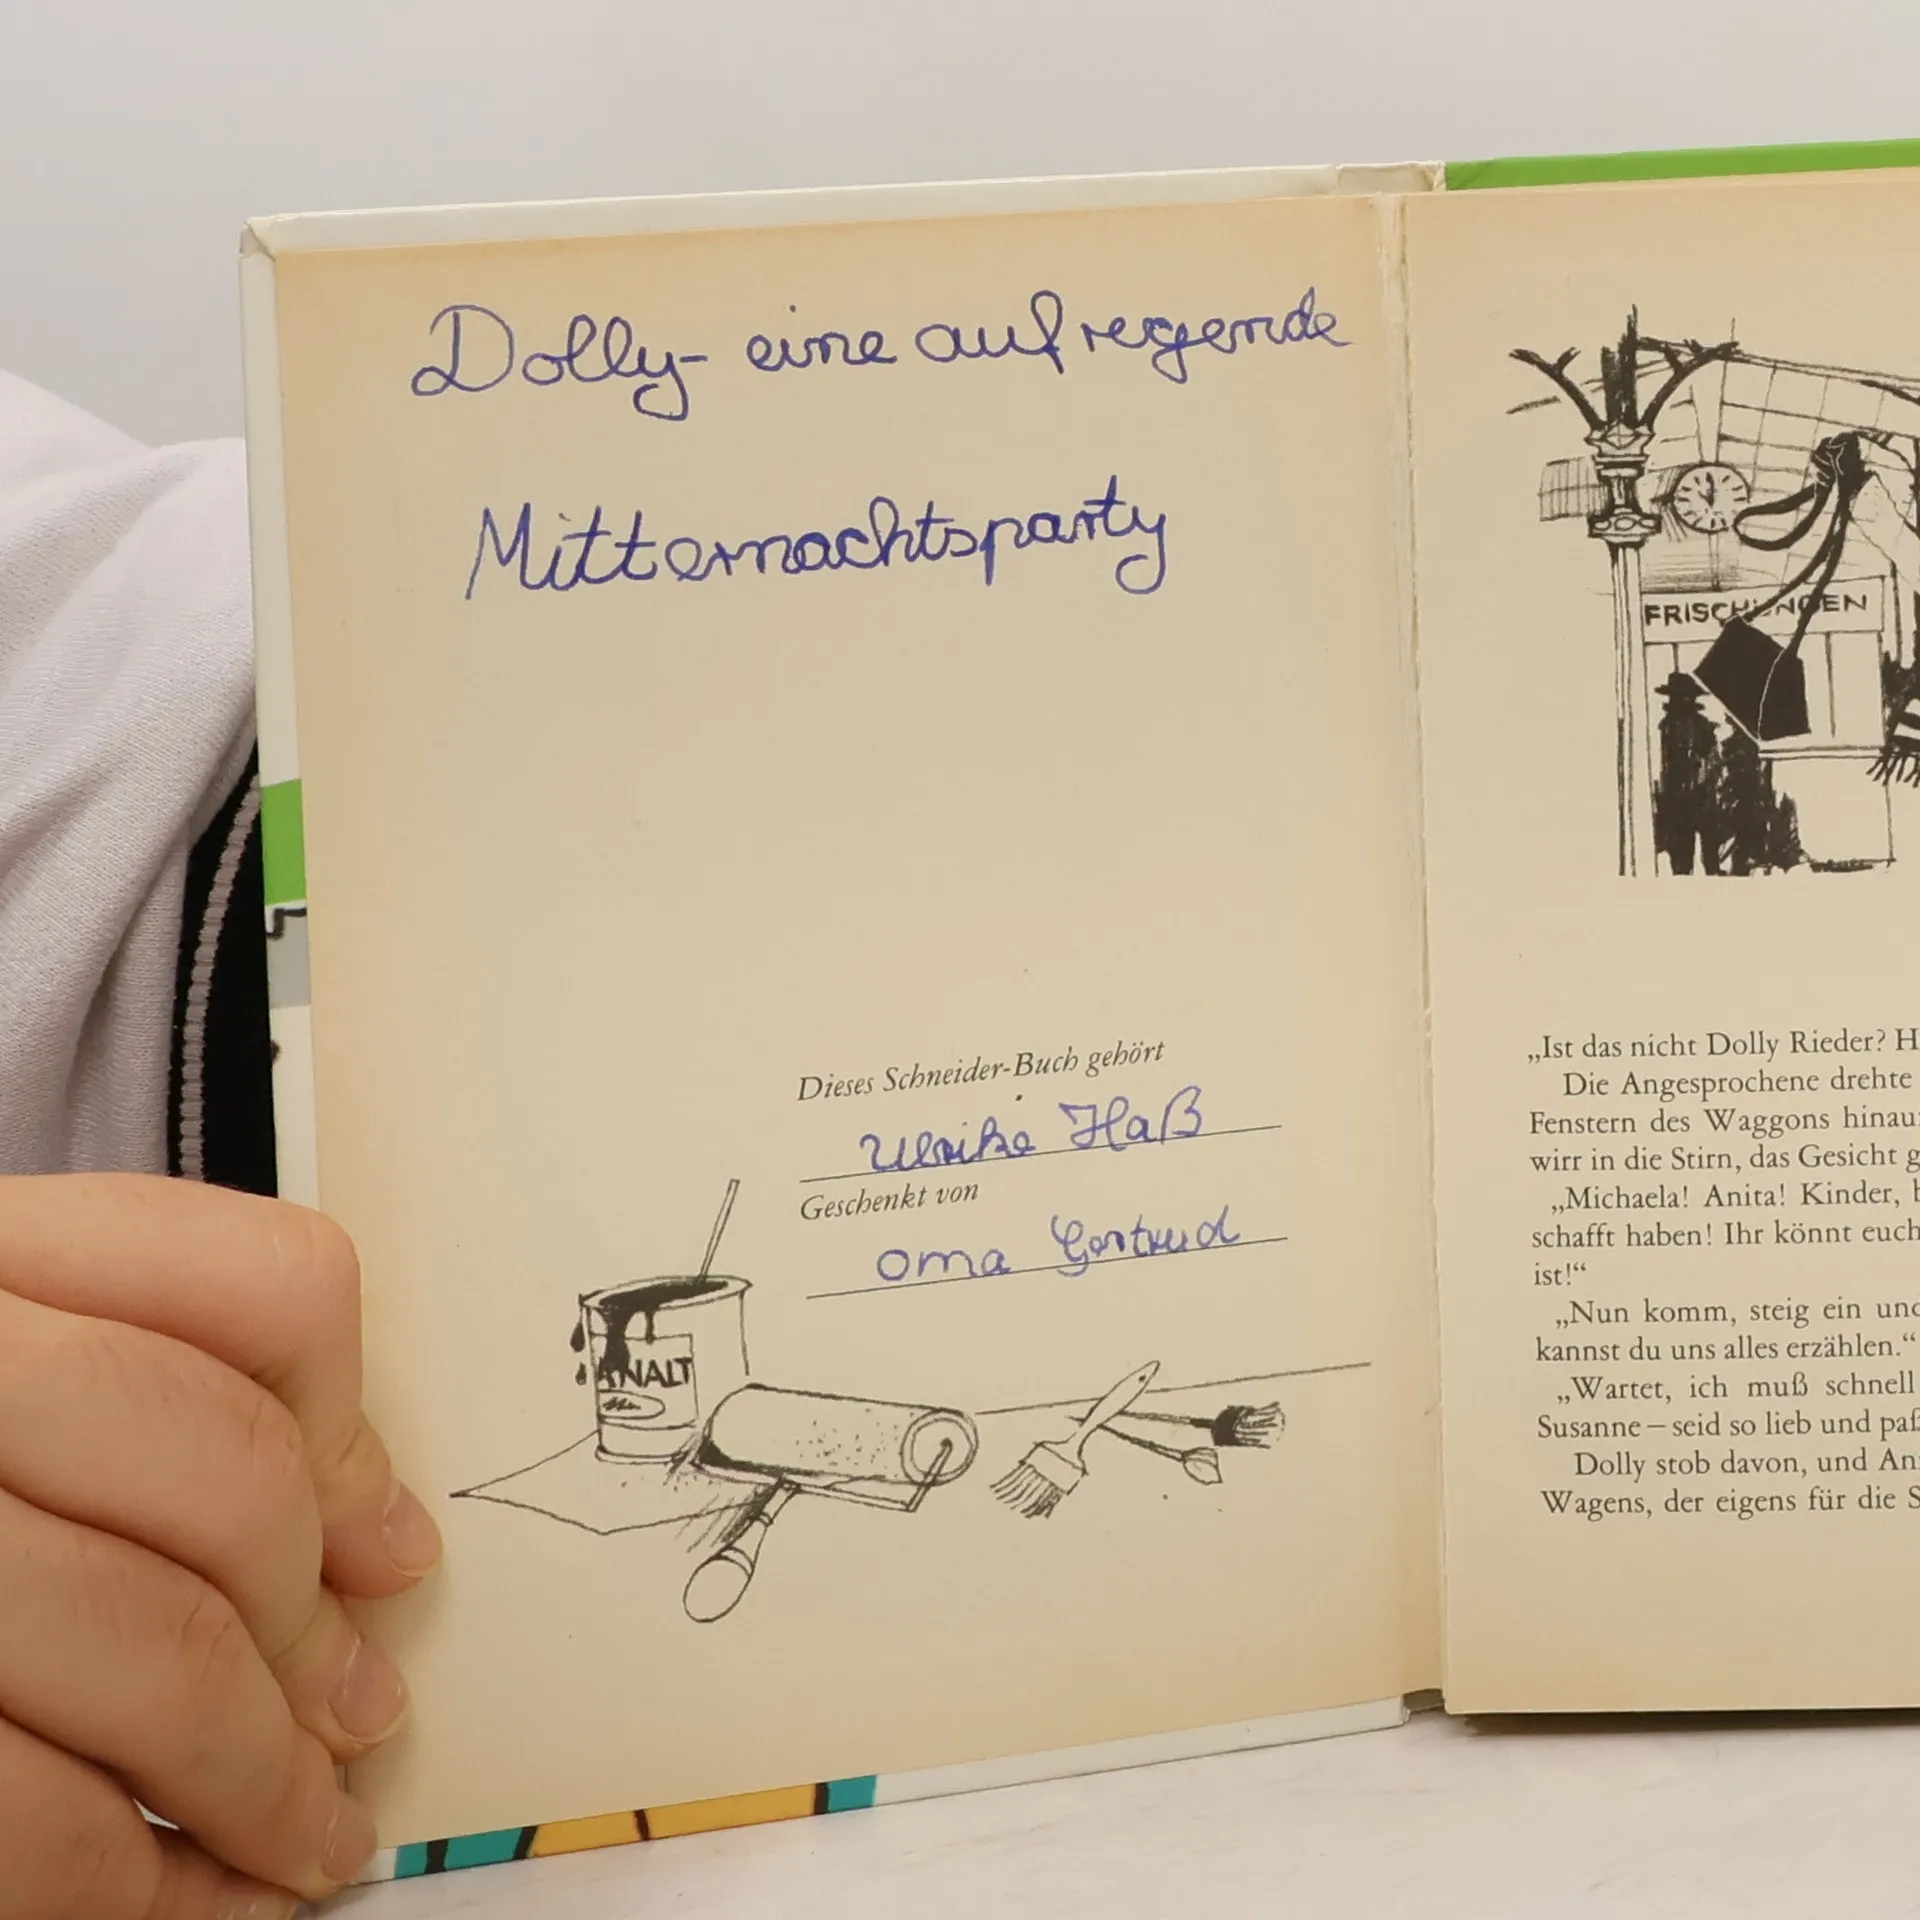 Dolly- eine aufregende
Mitternachtsparty
Dieses Schneider-Buch gehört
Ulrike Haß
Geschenkt von
Oma Gertrud
ANALT
FRISCHUNGEN
„Ist das nicht Dolly Rieder? H
Die Angesprochene drehte
Fenstern des Waggons hinau
wirr in die Stirn, das Gesicht g
„Michaela! Anita! Kinder, b
schafft haben! Ihr könnt euch
ist!“
„Nun komm, steig ein und
kannst du uns alles erzählen.“
„Wartet, ich muß schnell
Susanne – seid so lieb und paß
Dolly stob davon, und An
Wagens, der eigens für die S